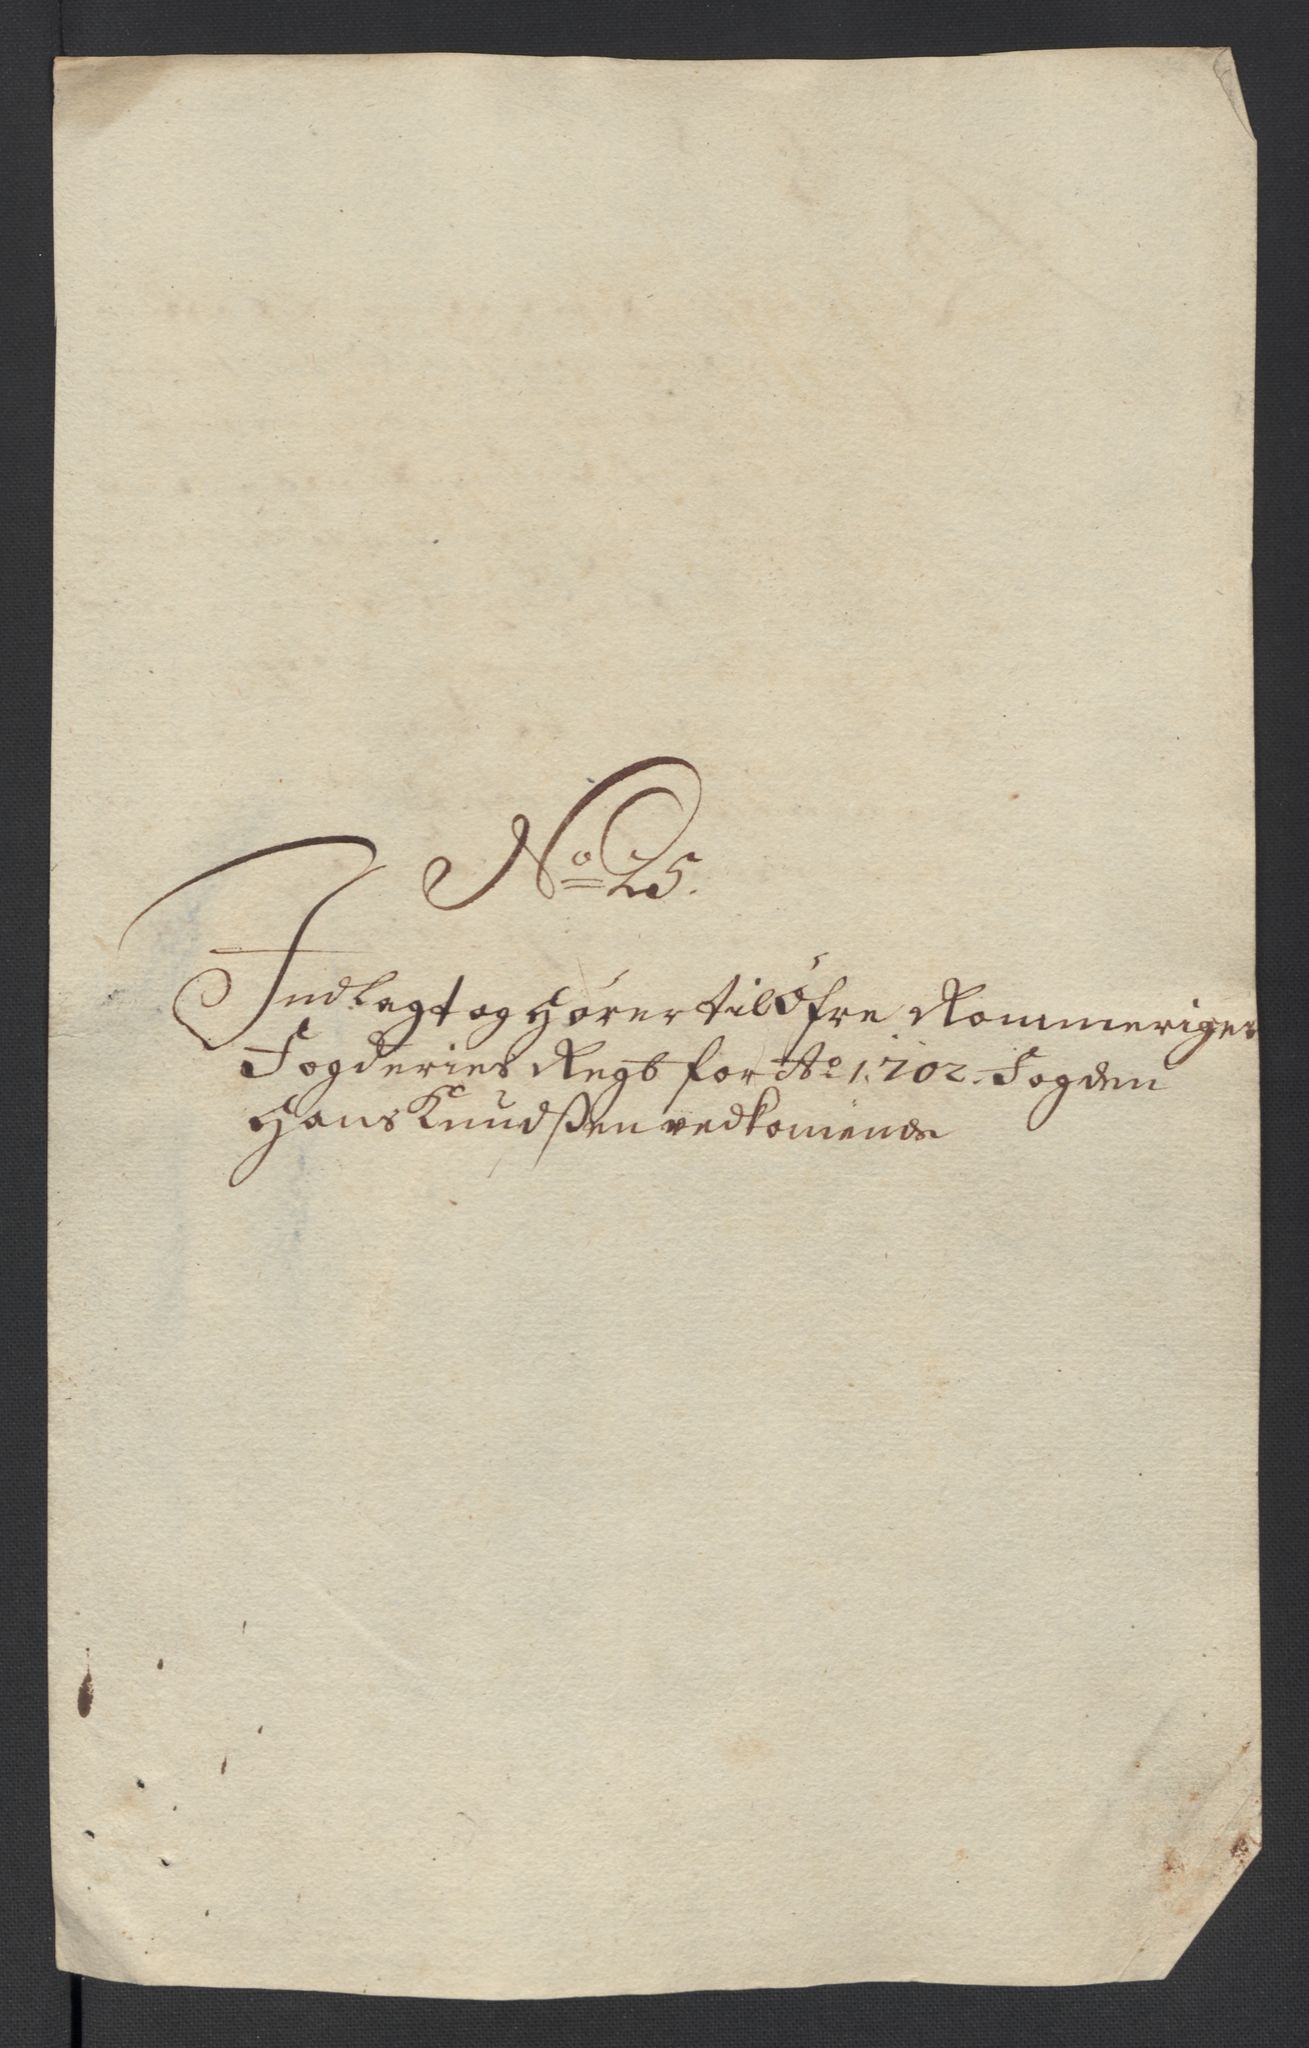 No 25.
Indlagt og hörer til Öfre Rommeriges
Fogderies Regb for Ao 1702. Fogden
Hans Knudßen vedkomende